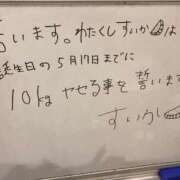 言います。わたくしすいか🍉は
誕生日の5月17日までに
10kgやせる事を誓います
すいか🍉